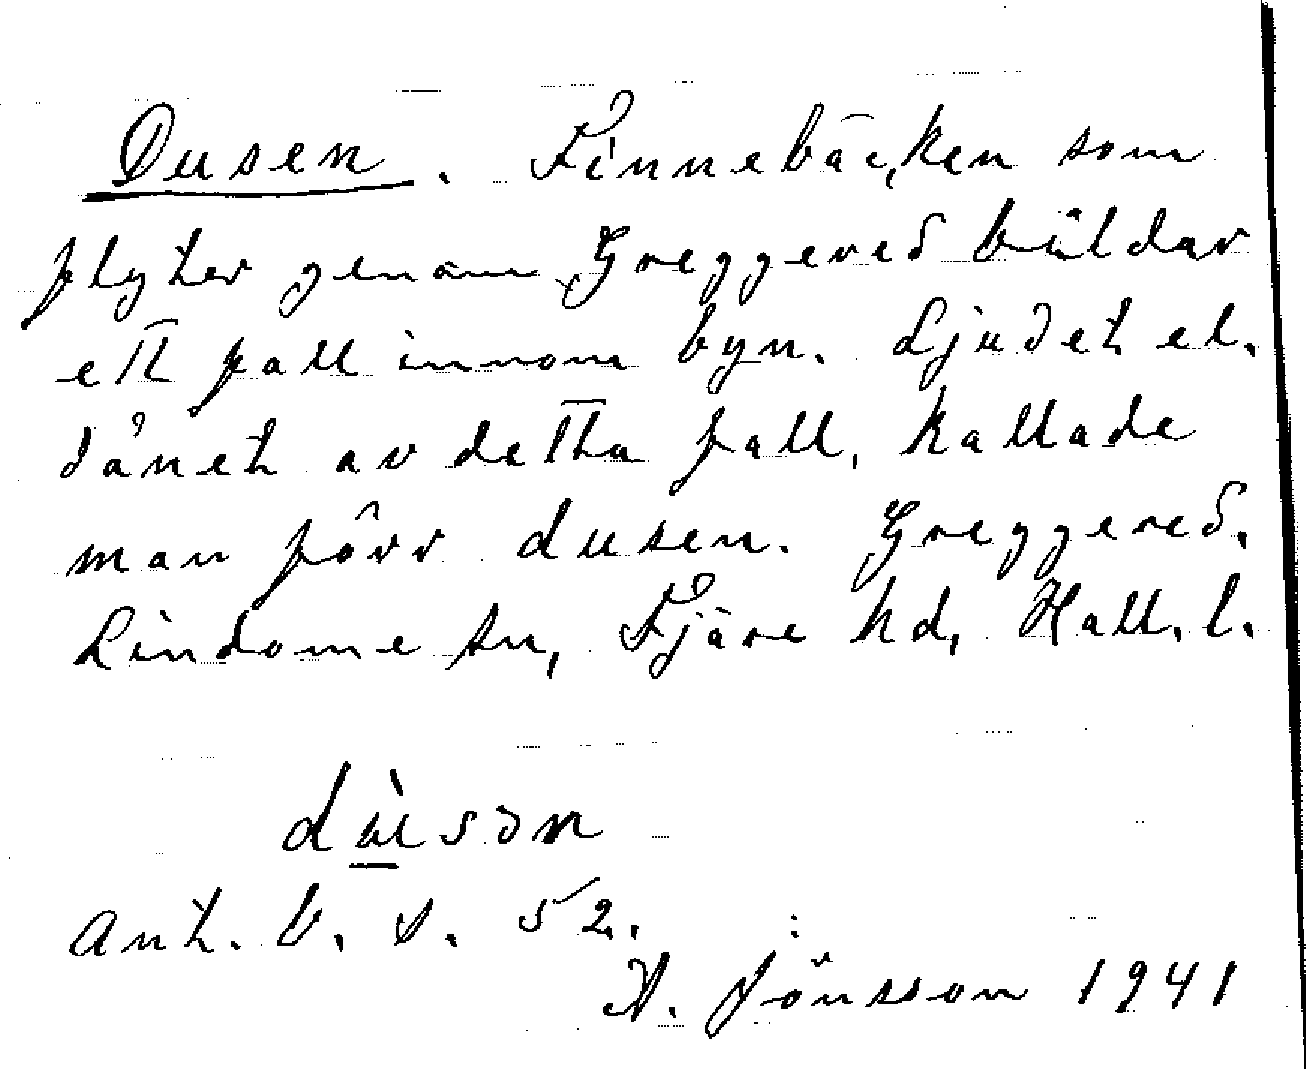 Dusen. Finnebäcken som
flyter genom Greggered bildar
ett fall innom byn. Ljudet el.
dånet av detta fall, kallade
man förr dusen. Greggered.
Lindome sn, Fjäre hd, Hall. l.
dùsən
Ant. b. s. 52.
A. Jönsson 1941